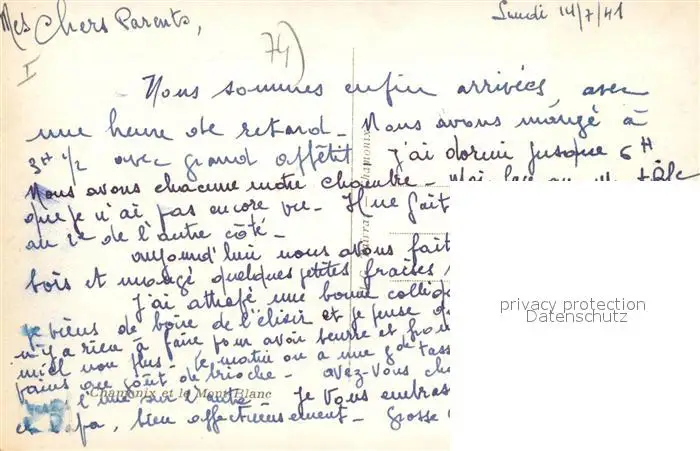 Mes Chers Parents,
Lundi 14/7/41
74)
I
Nous sommes enfin arrivées, avec
une heure de retard - Nous avons mangé à
3H 1/2 avec grand appétit J'ai dormi jusque 6H
Nous avons chacune notre chambre -
que je n'ai pas encore vu - Il ne fait
au 2e de l'autre côté -
aujourd'hui nous avons fait
bois et mangé quelques petites fraises
J'ai attrapé une bonne
Je viens de boire de l'élixir et je pense
n'y a rien à faire pour avoir beurre et
miel non plus - Le matin on a une gde tass
pains au goût de brioche - avez-vous
l'une sur l'autre - Je vous embras
et Papa, bien affectueusement - Grosse
Chamonix et le Mont-Blanc
privacy protection
Datenschutz